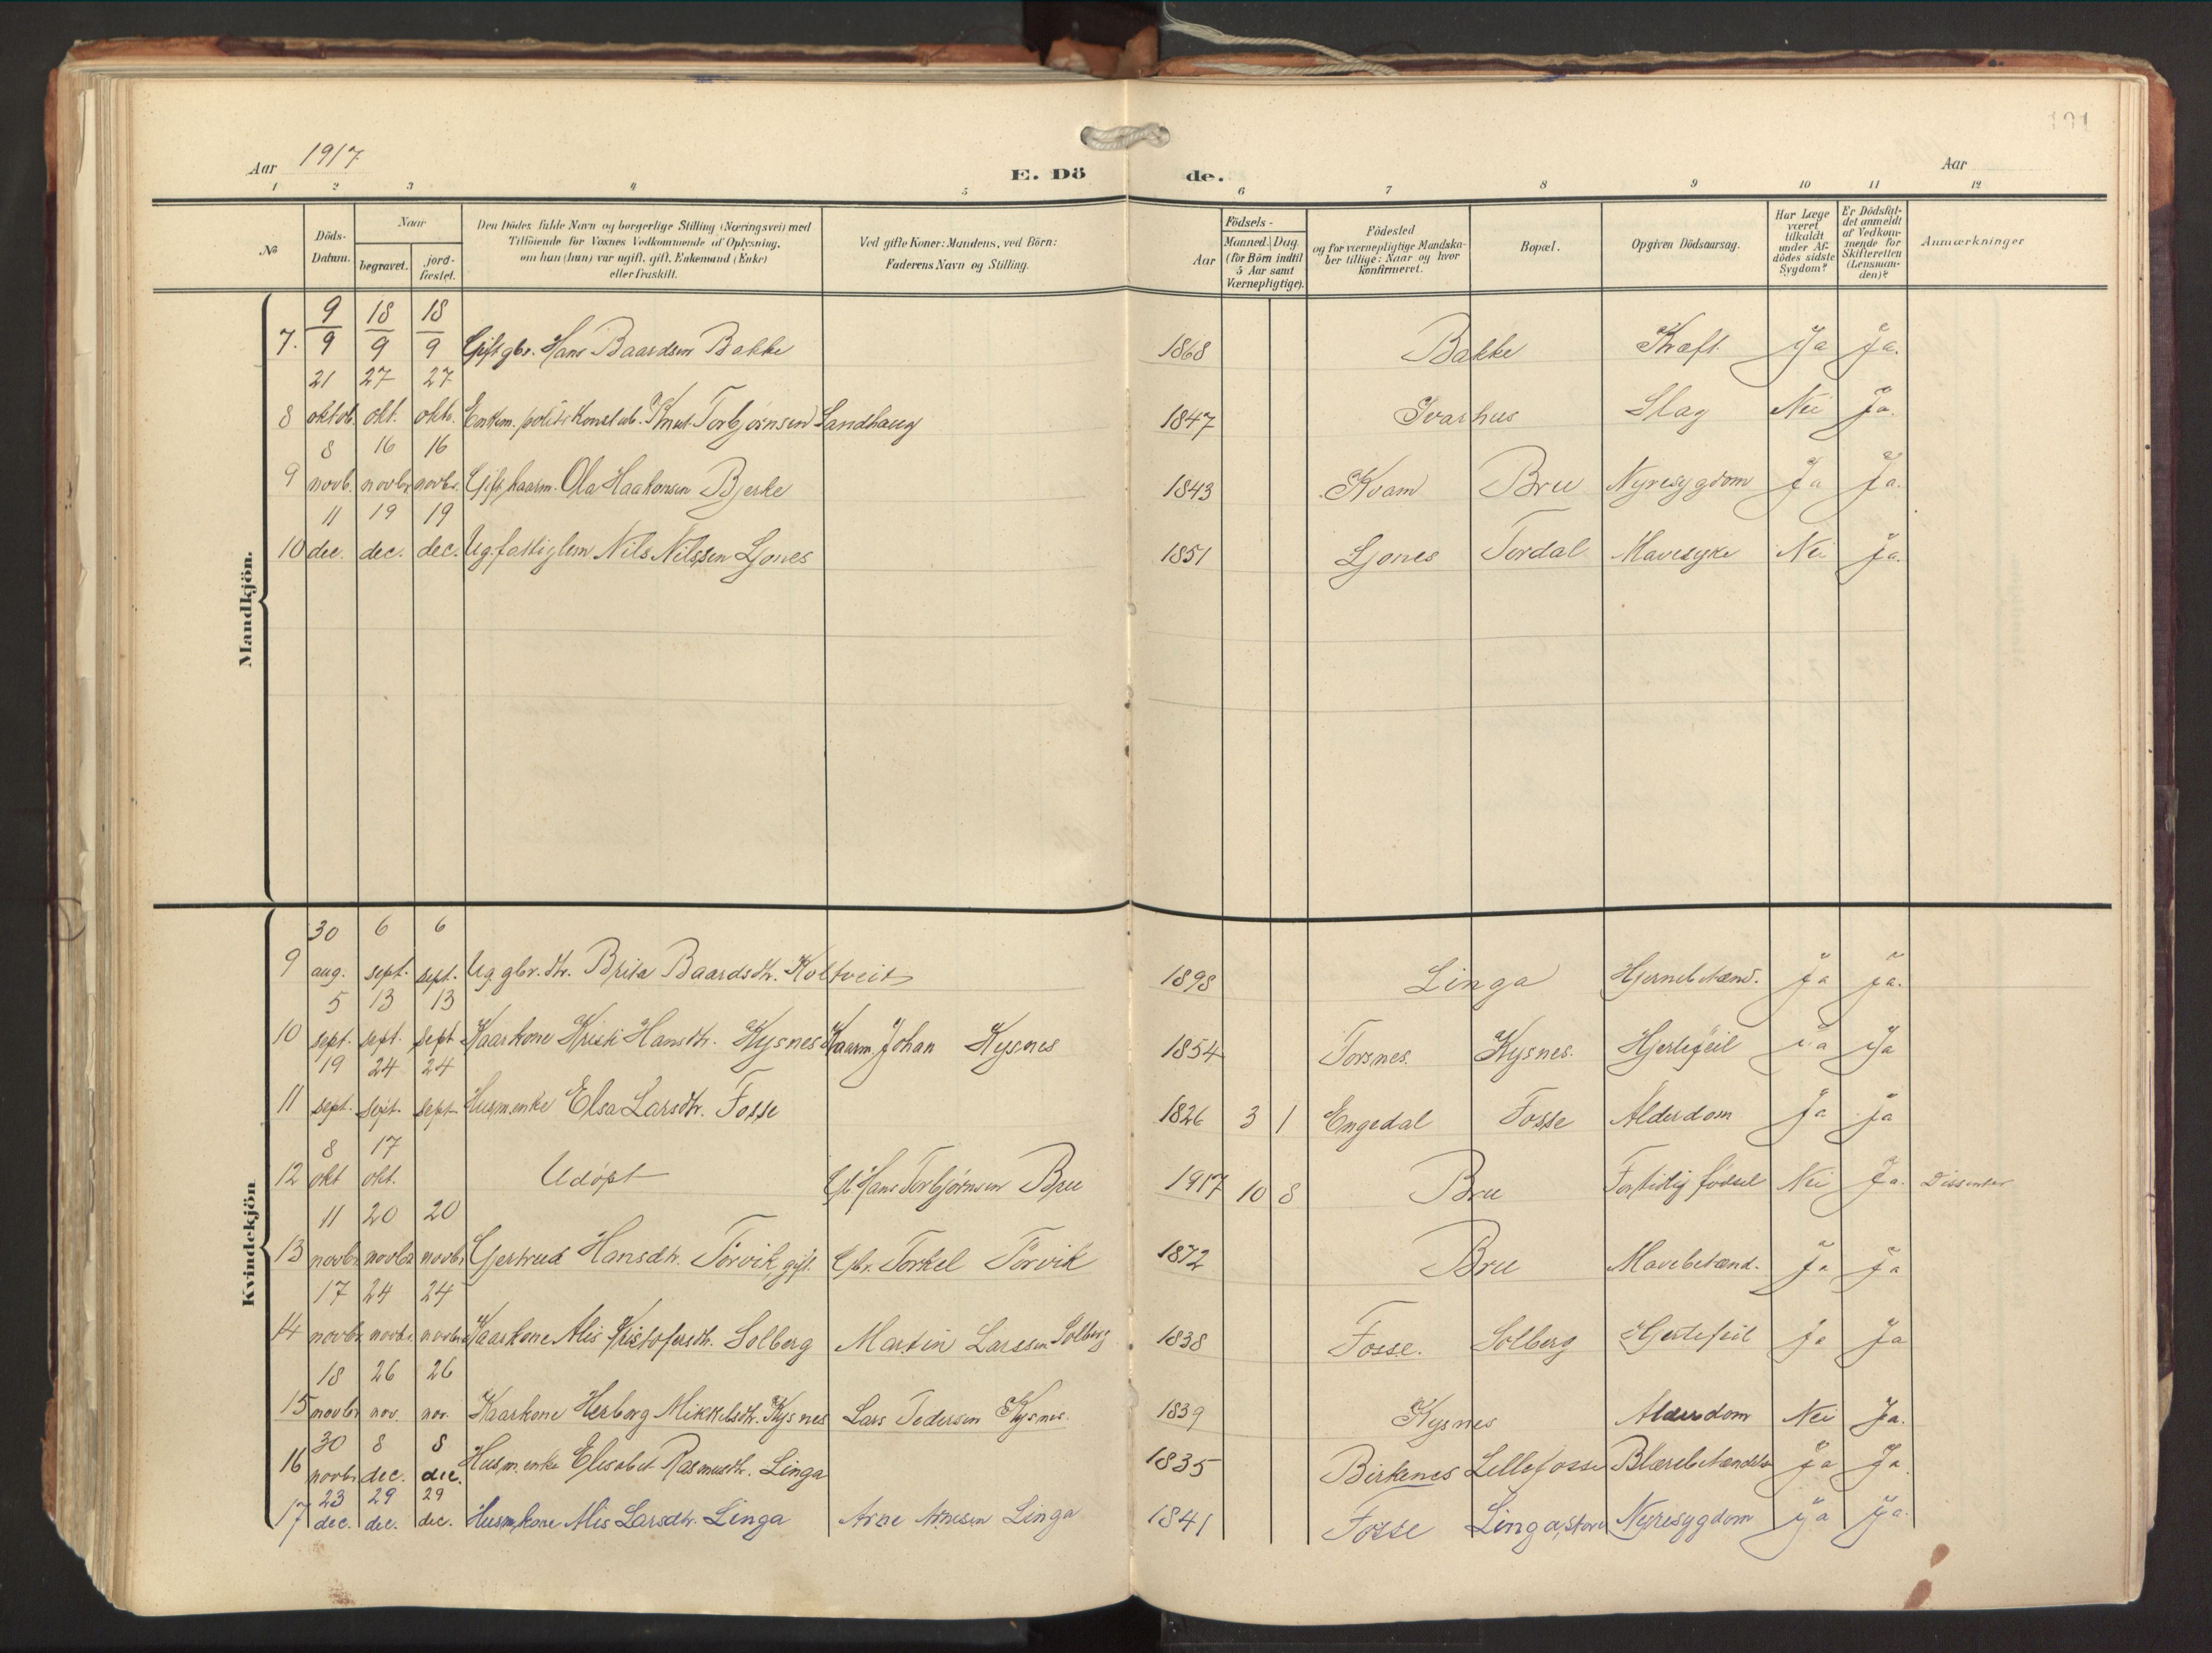 Aar 1917
E. Dö de.
Aar
1 2 3 4 5 6 7 8 9 10 11 12
No
Döds-Datum.
Naar
begravet.
jord-fæstet.
Den Dödes fulde Navn og borgerlige Stilling (Næringsvei) med
Tilföiende for Voxnes Vedkommende af Oplysning,
om han (hun) var ugift, gift, Enkemand (Enke)
eller fraskilt.
Ved gifte Koner: Mandens, ved Börn:
Faderens Navn og Stilling.
Födsels-
Aar
Maaned. Dag.
(for Börn indtil
5 Aar samt
Værnepligtige).
Födested
og for værnepligtige Mandska-
ber tillige: Naar og hvor
konfirmeret.
Bopæl.
Opgiven Dödsaarsag.
Har Læge
været
tilkaldt
under Af-
dödes sidste
Sygdom?
Er Dödsfal-
det anmeldt
af Vedkom-
mende for
Skifteretten
(Lensman-
den)?
Anmærkninger
Mandkjön.
9 18 18
7. 9 9 9 Gift gbr. Hans Baardsen Bakke 1868 Bakke Kræft Ja Ja.
21 27 27
8 oktob. okt. oktb. Enkem. politikonstab. Knut Torbjørnsen Sandhaug 1847 Ivarhus Slag Nei Ja.
8 16 16
9 novb. novbr novbr. Gift kaarm. Ola Haakonsen Bjerke 1843 Kvam Bru Nyresygdom Ja Ja.
11 19 19
10 dec. dec. dec. Ug. fattiglem Nils Nilssen Ljones 1851 Ljones Tordal Mavesyke Nei Ja.
Kvindekjön
30 6 6
9 aug. sept. sept. Ug. gbr. dtr. Brita Baardsdtr. Koltveit 1898 Linga Hjernebetænd. Ja Ja.
5 13 13
10 sept. sept. sept Kaarkone Kristi Hansdtr. Kysnes Kaarm. Johan Kysnes 1854 Torsnes. Kysnes. Hjertefeil Ja Ja
19 24 24
11 sept. sept. sept. Husm.enke Elsa Larsdtr. Fosse 1826 3 1 Engedal Fosse Alderdom Ja Ja
8 17
12 okt okt. Udøpt Gb. Hans Torbjørnsen Bru 1917 10 8 Bru Fortidlig fødsel Nei Ja. Dissenter
11 20 20
13 novbr novbr novbr Gertrud Hansdtr. Tørvik, gift. Gbr. Torkel Tørvik 1872 Bru Mavebetænd. Ja Ja
17 24 24
14 novbr novbr. novbr. Kaarkone Alis Kristofersdtr. Solberg Martin Larssen Solberg 1838 Fosse. Solberg Hjertefeil Ja Ja
18 26 26
15 novbr nov. nov. Kaarkone Herborg Mikkelsdtr. Kysnes Lars Pedersen Kysnes. 1839 Kysnes Alderdom Nei Ja.
30 8 8
16 novbr dec. dec. Husm.enke Elisabet Rasmusdtr. Linga 1835 Birkenes Lillefosse Blærebetændelse Ja Ja.
23 29 29
17 dec. dec. dec. Husm.kone Alis Larsdtr. Linga Arne Arnesen Linga 1841 Fosse Linga, store Nyresygdom Ja Ja.